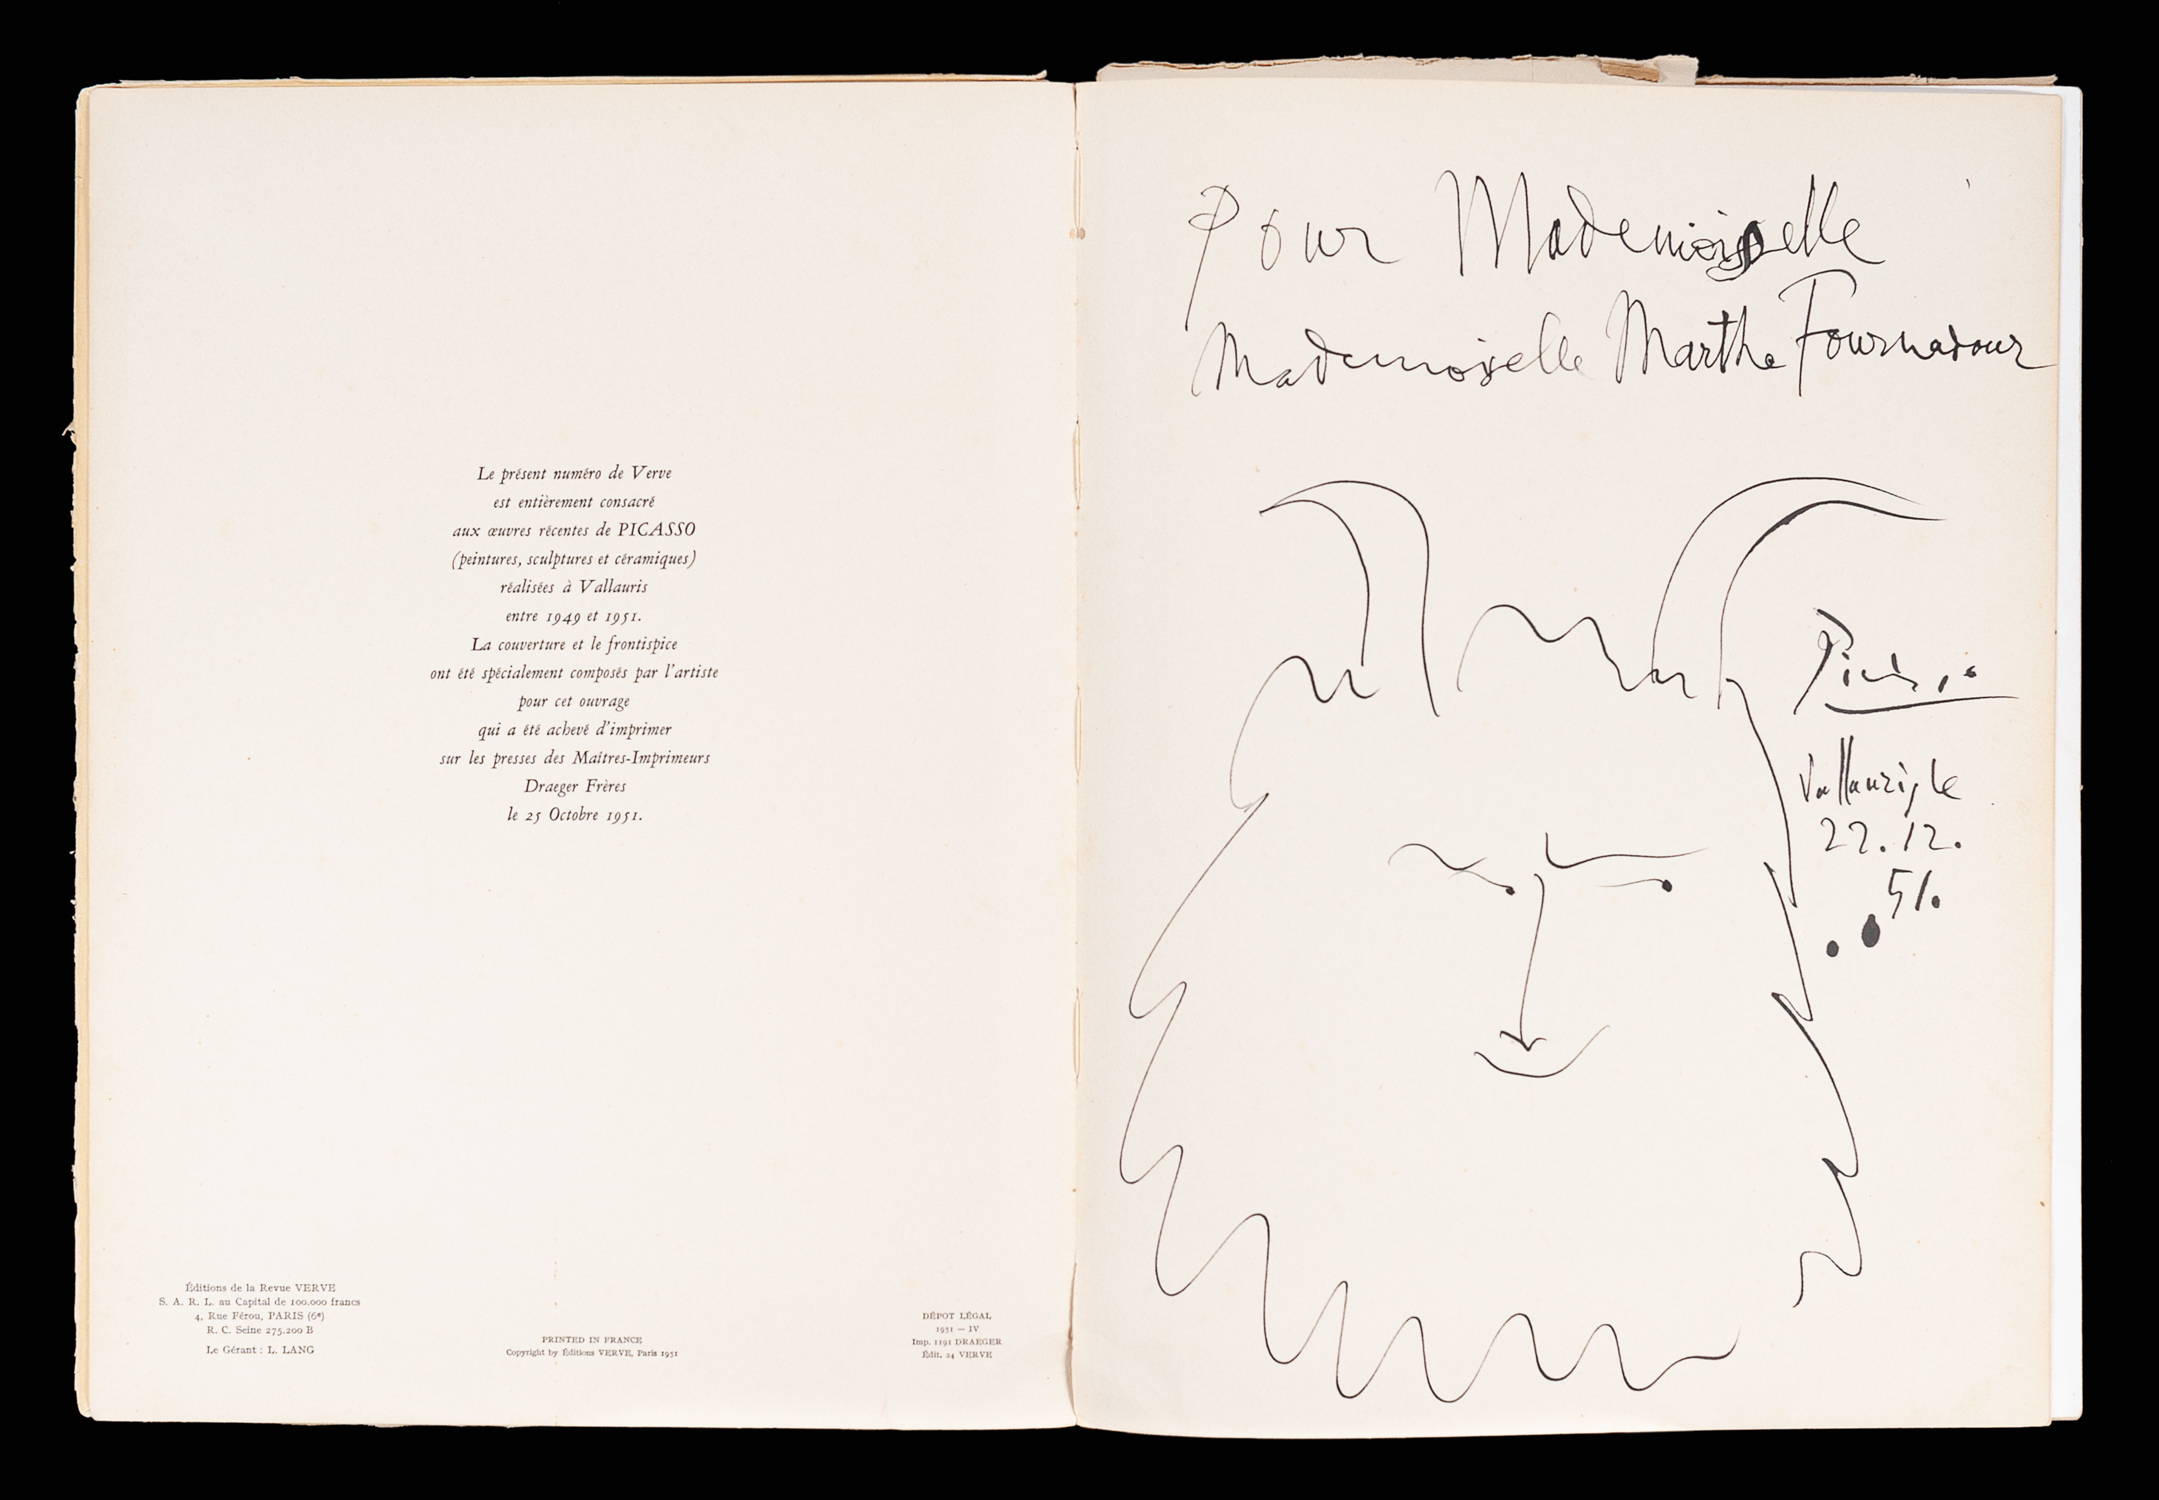 Le présent numéro de Verve
est entièrement consacré
aux œuvres récentes de PICASSO
(peintures, sculptures et céramiques)
réalisées à Vallauris
entre 1949 et 1951.
La couverture et le frontispice
ont été spécialement composés par l'artiste
pour cet ouvrage
qui a été achevé d'imprimer
sur les presses des Maîtres-Imprimeurs
Draeger Frères
le 25 Octobre 1951.
Éditions de la Revue VERVE
S. A. R. L. au Capital de 100.000 francs
4, Rue Férou, PARIS (6e)
R. C. Seine 275.200 B
Le Gérant : L. LANG
PRINTED IN FRANCE
Copyright by Éditions VERVE, Paris 1951
DÉPOT LÉGAL
1951 — IV
Imp. 1191 DRAEGER
Édit. 24 VERVE
Pour Mademoiselle
Mademoiselle Marthe Fournadour
Picasso
Vallauris le
22.12.
51.